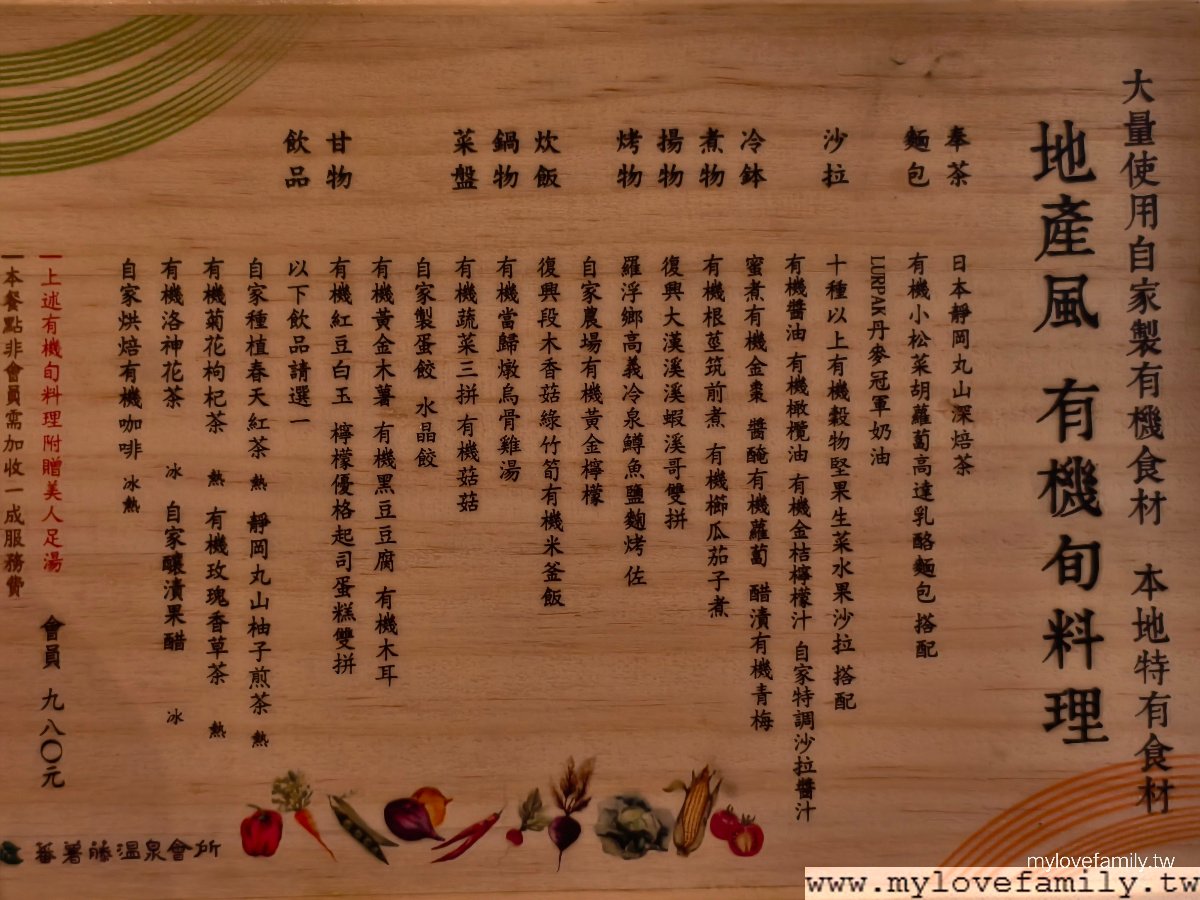 大量使用自家製有機食材 本地特有食材
地產風 有機旬料理
奉茶 日本靜岡丸山深焙茶
麵包 有機小松菜胡蘿蔔高達乳酪麵包 搭配
LURPAK丹麥冠軍奶油
沙拉 十種以上有機穀物堅果生菜水果沙拉 搭配
有機醬油 有機橄欖油 有機金桔檸檬汁 自家特調沙拉醬汁
冷鉢 蜜煮有機金棗 醬醃有機蘿蔔 醋漬有機青梅
煮物 有機根莖筑前煮 有機櫛瓜茄子煮
揚物 復興大漢溪溪蝦溪哥雙拼
烤物 羅浮鄉高義冷泉鱒魚鹽麴烤 佐
自家農場有機黃金檸檬
炊飯 復興段木香菇綠竹筍有機米釜飯
鍋物 有機當歸燉烏骨雞湯
菜盤 有機蔬菜三拼 有機菇菇
自家製蛋餃 水晶餃
有機黃金木薯 有機黑豆豆腐 有機木耳
甘物 有機紅豆白玉 檸檬優格起司蛋糕雙拼
飲品 以下飲品請選一
自家種植春天紅茶 熱 靜岡丸山柚子煎茶 熱
有機菊花枸杞茶 熱 有機玫瑰香草茶 熱
有機洛神花茶 冰 自家釀漬果醋 冰
自家烘焙有機咖啡 冰熱
一上述有機旬料理附贈美人足湯 會員 九八〇元
一本餐點非會員需加收一成服務費
蕃薯藤溫泉會所
mylovefamily.tw
www.mylovefamily.tw